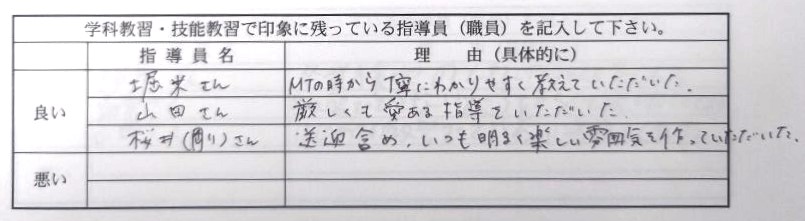 学科教習・技能教習で印象に残っている指導員（職員）を記入して下さい。
指導員名 理　由（具体的に）
良い 堀米さん MTの時から丁寧にわかりやすく教えていただいた。
山田さん 厳しくも愛ある指導をいただいた。
桜井(剛)さん 送迎含め、いつも明るく楽しい雰囲気を作っていただいた。
悪い